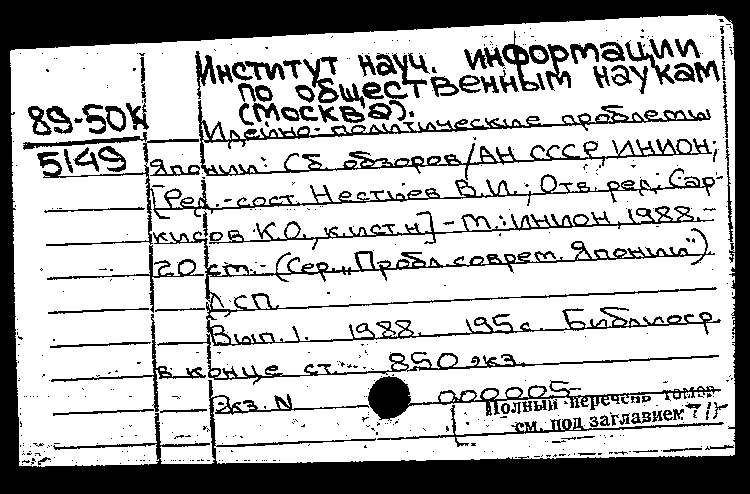 Институт науч. информации
по общественным наукам
(Москва).
89-50К
5149
Идейно-политические проблемы
Японии: Сб. обзоров/АН СССР, ИНИОН;
[Ред.-сост. Нестьев В.И.; Отв. ред. Сар-
кисов К.О., к.ист.н] - М.: ИНИОН, 1988.-
20 см.-(Сер. „Пробл. соврем. Японии")
ДСП
Вып. 1. 1988. 195 с. Библиогр
в конце ст. 850 экз.
Экз. N 000005
Полный перечень томов
см. под заглавием